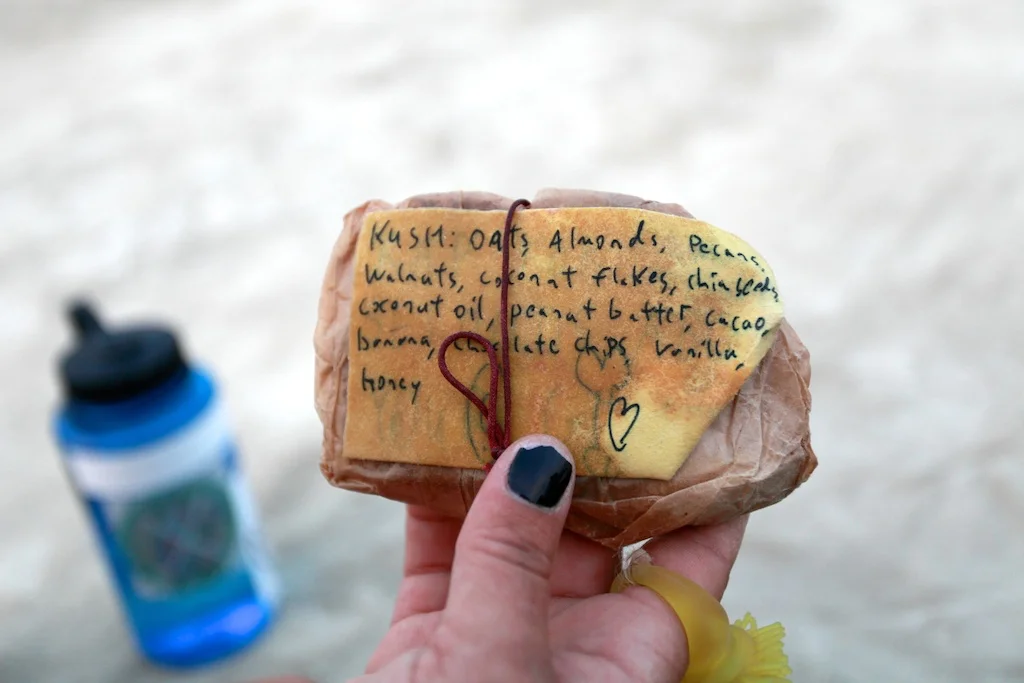 KUSH: Oats, Almonds, Pecans,
Walnuts, coconut flakes, chia seeds,
coconut oil, peanut butter, cacao,
banana, chocolate chips, vanilla,
Honey